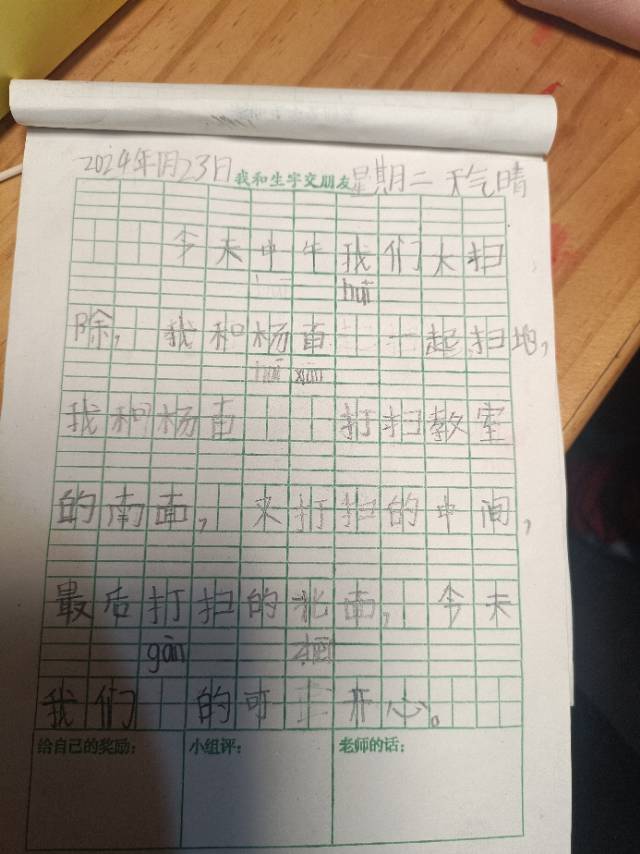 2024年1月23日 我和生字交朋友 星期二 天气晴
今天中午我们大扫
huī
除,我和杨苗 一起扫地,
我和杨苗 打扫教室
的南面,又打扫的中间,
最后打扫的北面,今天
gàn
我们 的可 开心。
给自己的奖励: 小组评: 老师的话: